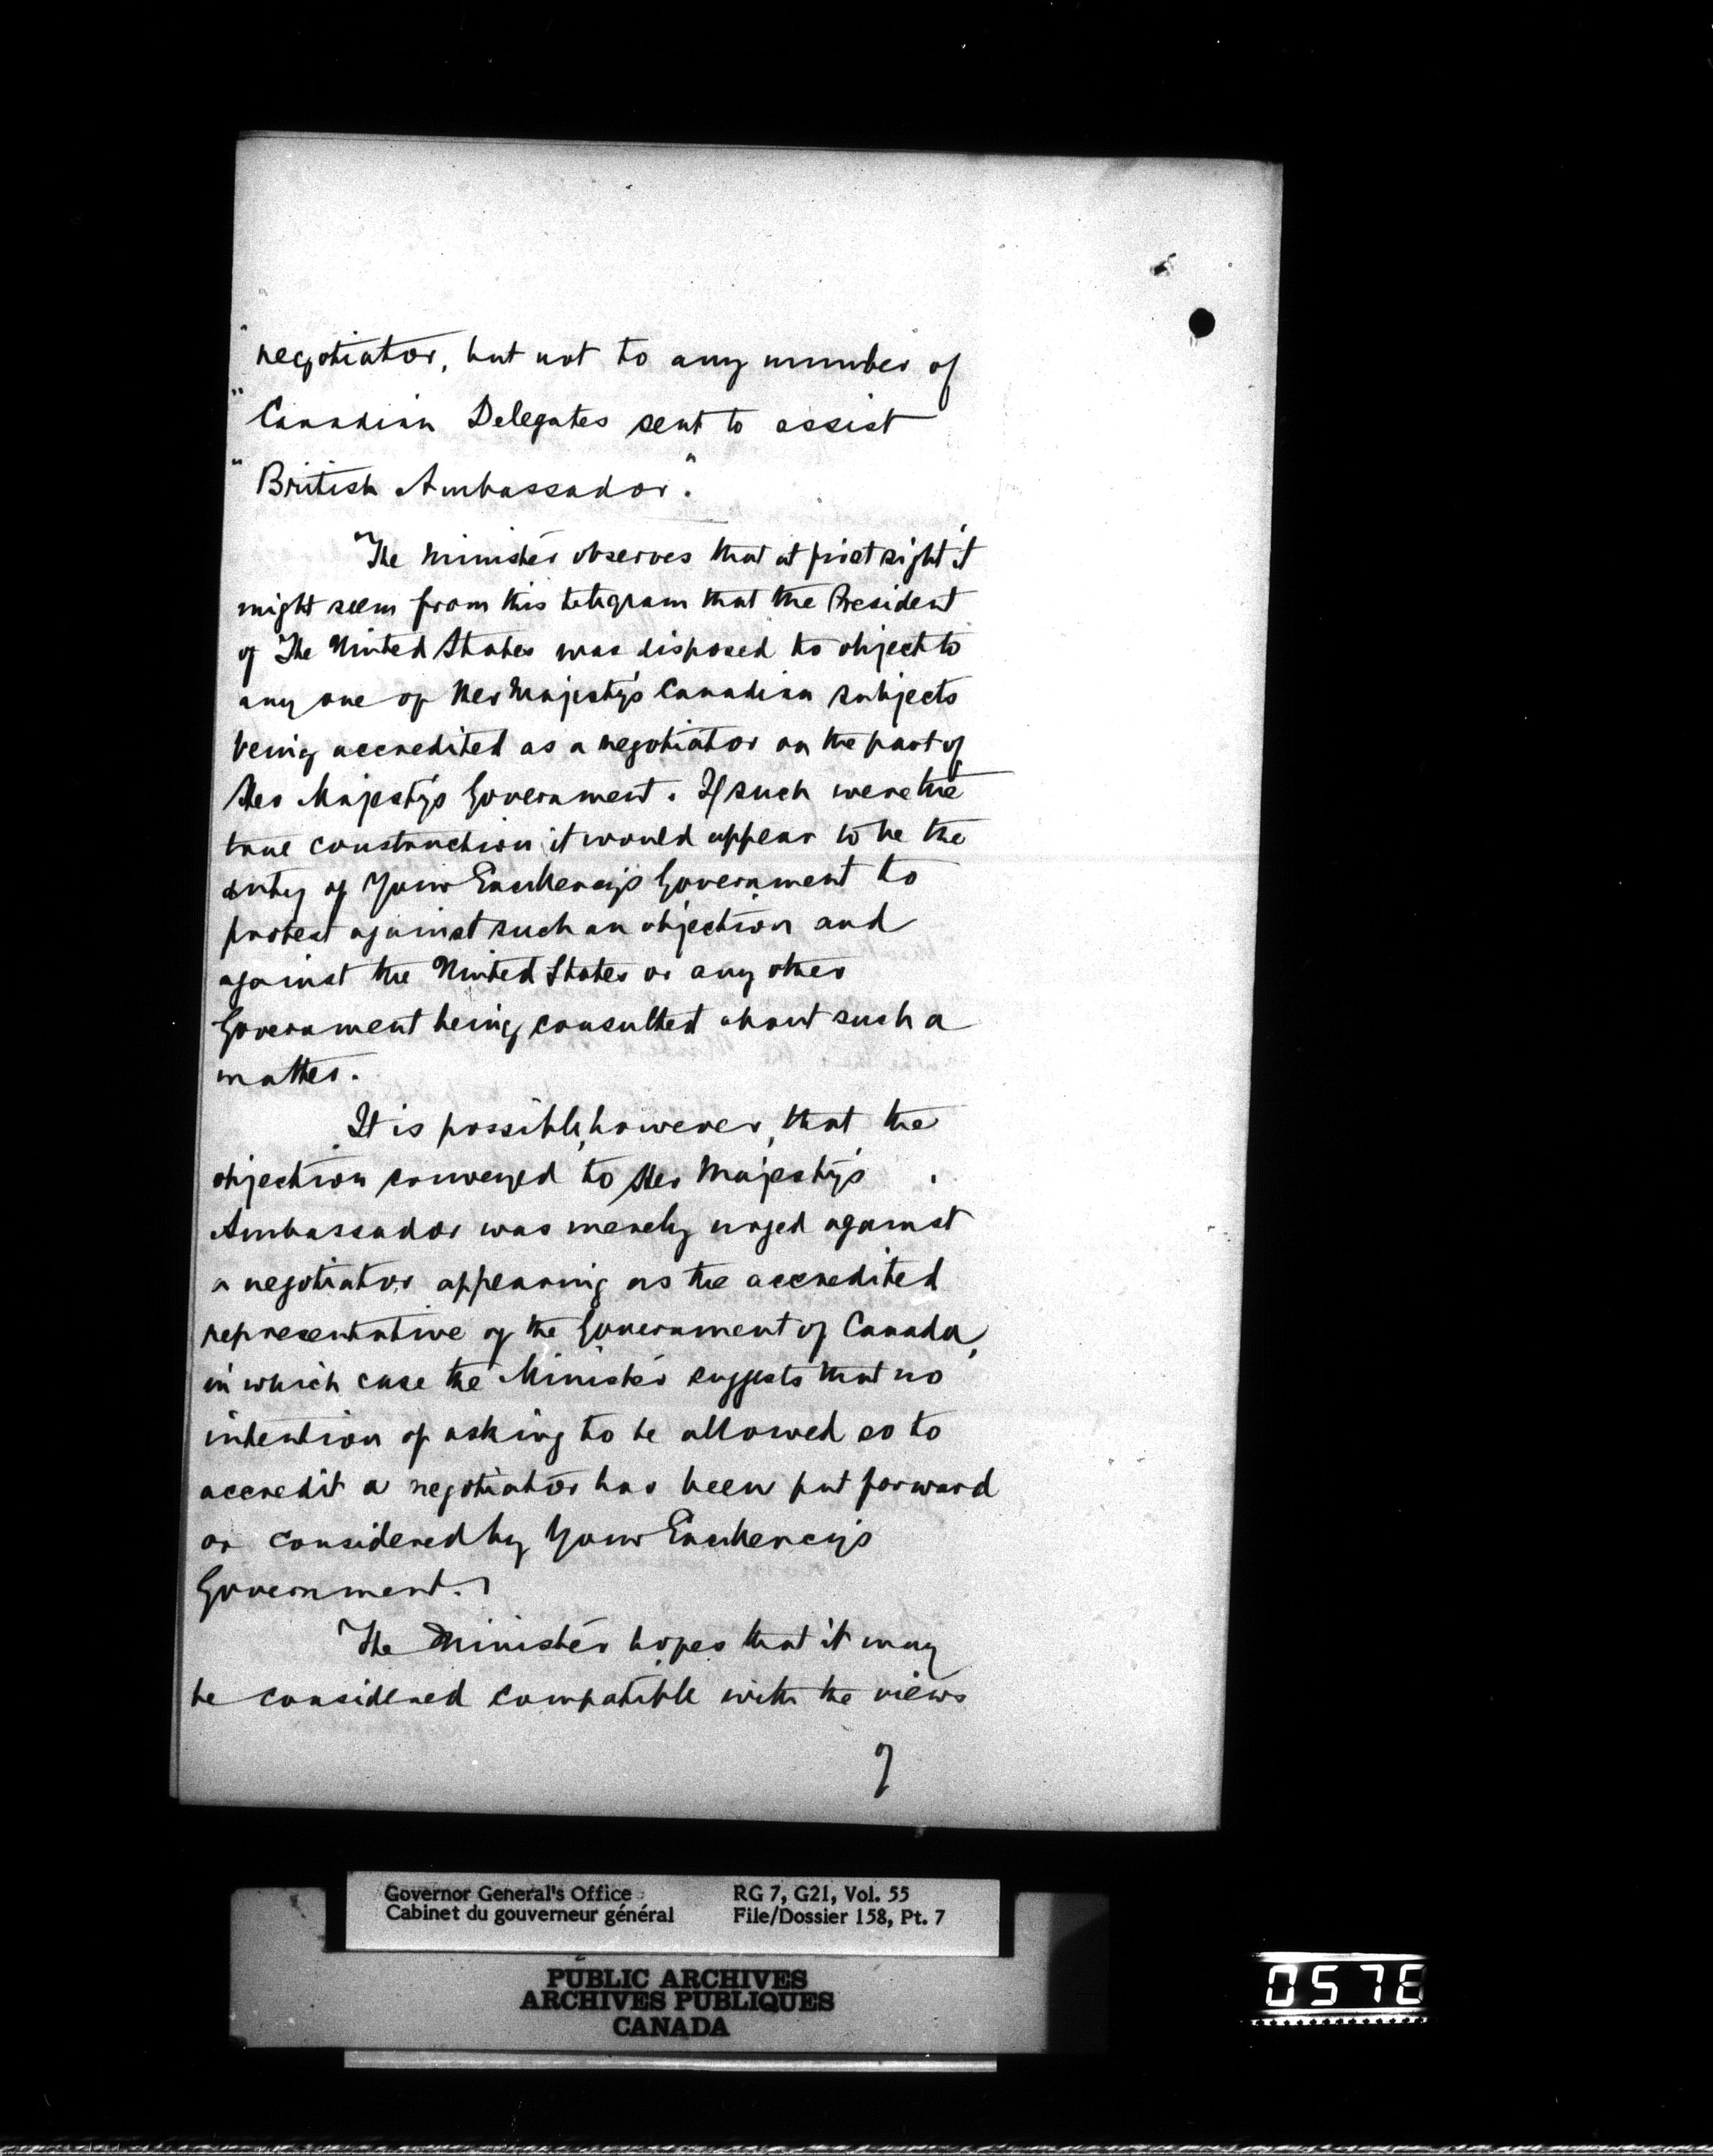 "negotiator, but not to any number of
"Canadian Delegates sent to assist
"British Ambassador."
The Minister observes that at first sight it
might seem from this telegram that the President
of The United States was disposed to object to
any one of Her Majesty's Canadian subjects
being accredited as a negotiator on the part of
Her Majesty's Government. If such were the
true construction it would appear to be the
duty of Your Excellency's Government to
protest against such an objection and
against the United States or any other
Government being consulted about such a
matter.
It is possible, however, that the
objection conveyed to Her Majesty's
Ambassador was merely urged against
a negotiator appearing as the accredited
representative of the Government of Canada,
in which case the Minister suggests that no
intention of asking to be allowed so to
accredit a negotiator has been put forward
or considered by Your Excellency's
Government.
The Minister hopes that it may
be considered compatible with the views
of
Governor General's Office RG 7, G21, Vol. 55
Cabinet du gouverneur général File/Dossier 158, Pt. 7
PUBLIC ARCHIVES
ARCHIVES PUBLIQUES
CANADA